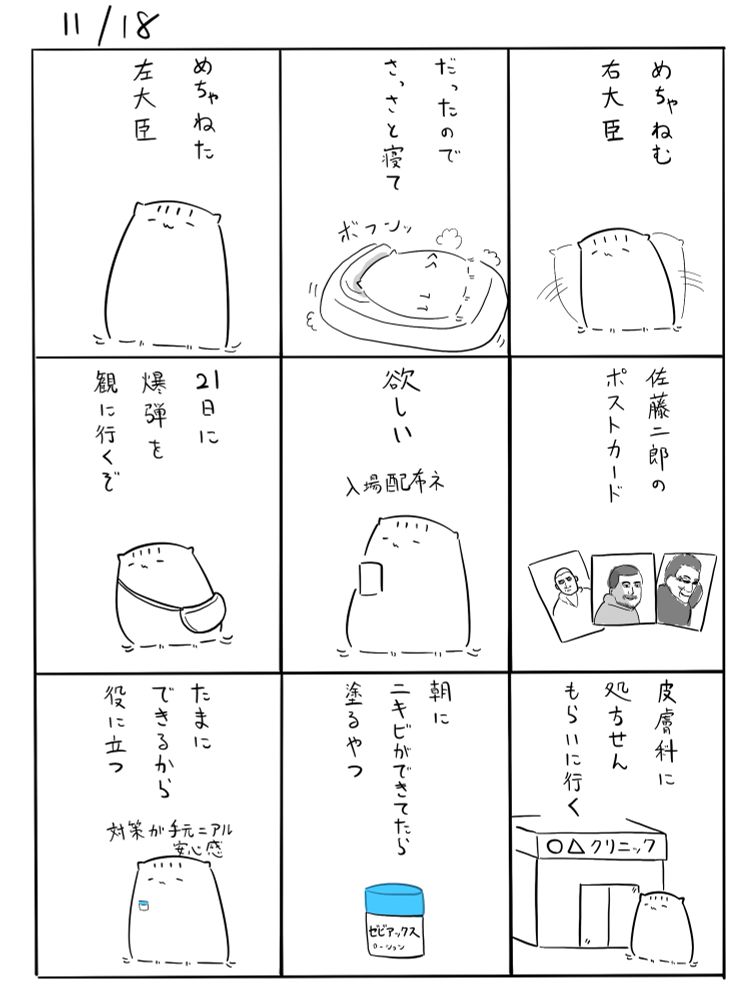 11/18
めちゃねむ
右大臣
だったので
さっさと寝て
ボフンッ
めちゃねた
左大臣
佐藤二郎の
ポストカード
欲しい
入場配布ネ
21日に
爆弾を
観に行くぞ
皮膚科に
処ちせん
もらいに行く
○△クリニック
朝に
ニキビができてたら
塗るやつ
ゼビアックス
ローション
たまに
できるから
役に立つ
対策が手元ニアル
安心感